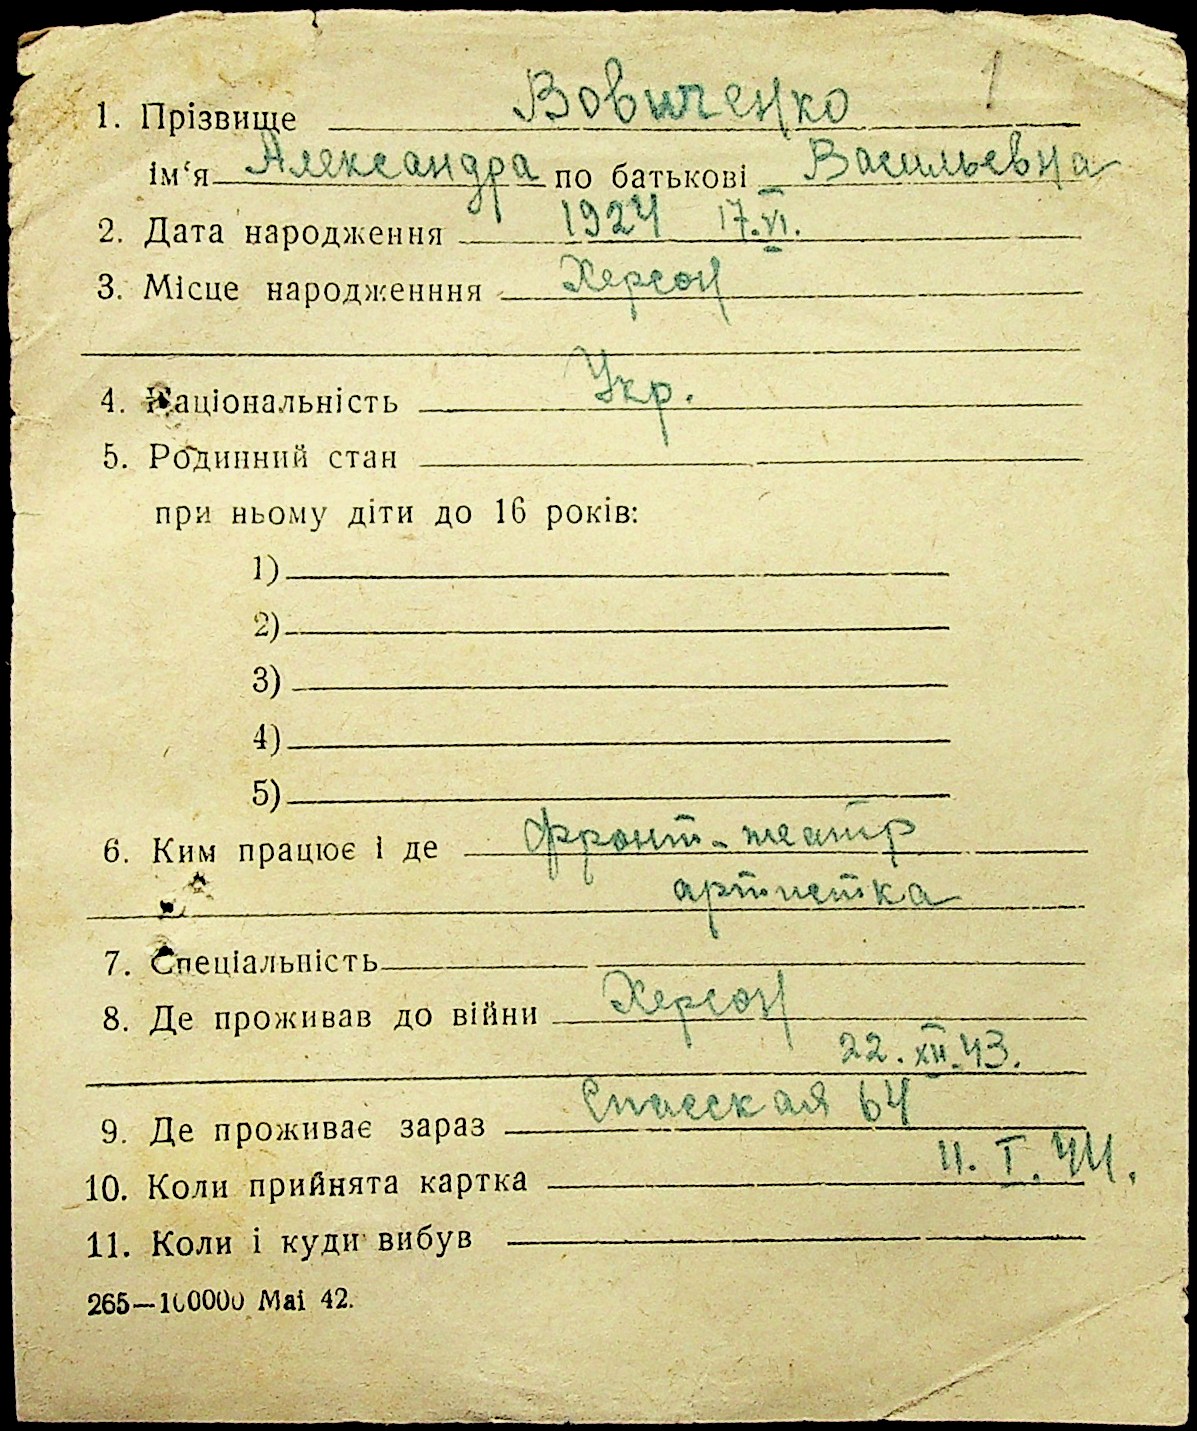 1
1. Прізвище Вовниченко
ім‘я Александра по батькові Васильевна
2. Дата народження 1924 17.VI.
3. Місце народженння Херсон
4. Національність Укр.
5. Родинний стан
при ньому діти до 16 років:
1)
2)
3)
4)
5)
6. Ким працює і де фронт-театр
артистка
7. Спеціальність
8. Де проживав до війни Херсон
22.XII.43.
9. Де проживає зараз Спасская 64
10. Коли прийнята картка 11.I.44.
11. Коли і куди вибув
265—100000 Mai 42.